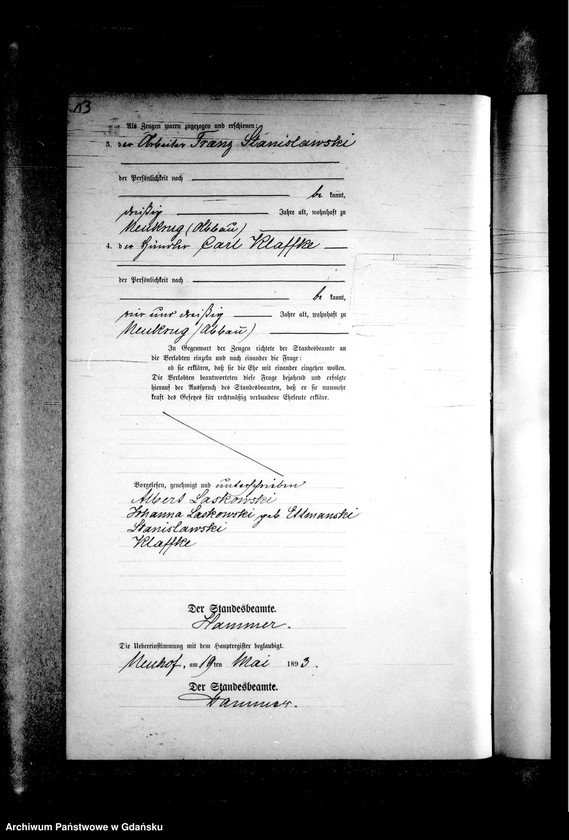 13
Als Zeugen waren zugezogen und erschienen:
3. der Arbeiter Franz Stanislawski
der Persönlichkeit nach
be kannt,
dreißig Jahre alt, wohnhaft zu
Neukrug (Abbau)
4. der Händler Carl Klaffke
der Persönlichkeit nach
be kannt,
vier und dreißig Jahre alt, wohnhaft zu
Neukrug (Abbau)
In Gegenwart der Zeugen richtete der Standesbeamte an
die Verlobten einzeln und nach einander die Frage:
ob sie erklären, daß sie die Ehe mit einander eingehen wollen.
Die Verlobten beantworteten diese Frage bejahend und erfolgte
hierauf der Ausspruch des Standesbeamten, daß er sie nunmehr
kraft des Gesetzes für rechtmäßig verbundene Eheleute erkläre.
Vorgelesen, genehmigt und unterschrieben
Albert Laskowski
Johanna Laskowski geb Ettmanski
Stanislawski
Klaffke
Der Standesbeamte.
Hammer.
Die Uebereinstimmung mit dem Hauptregister beglaubigt.
Neuhof, am 19 ten Mai 1893.
Der Standesbeamte.
Hammer.
Archiwum Państwowe w Gdańsku